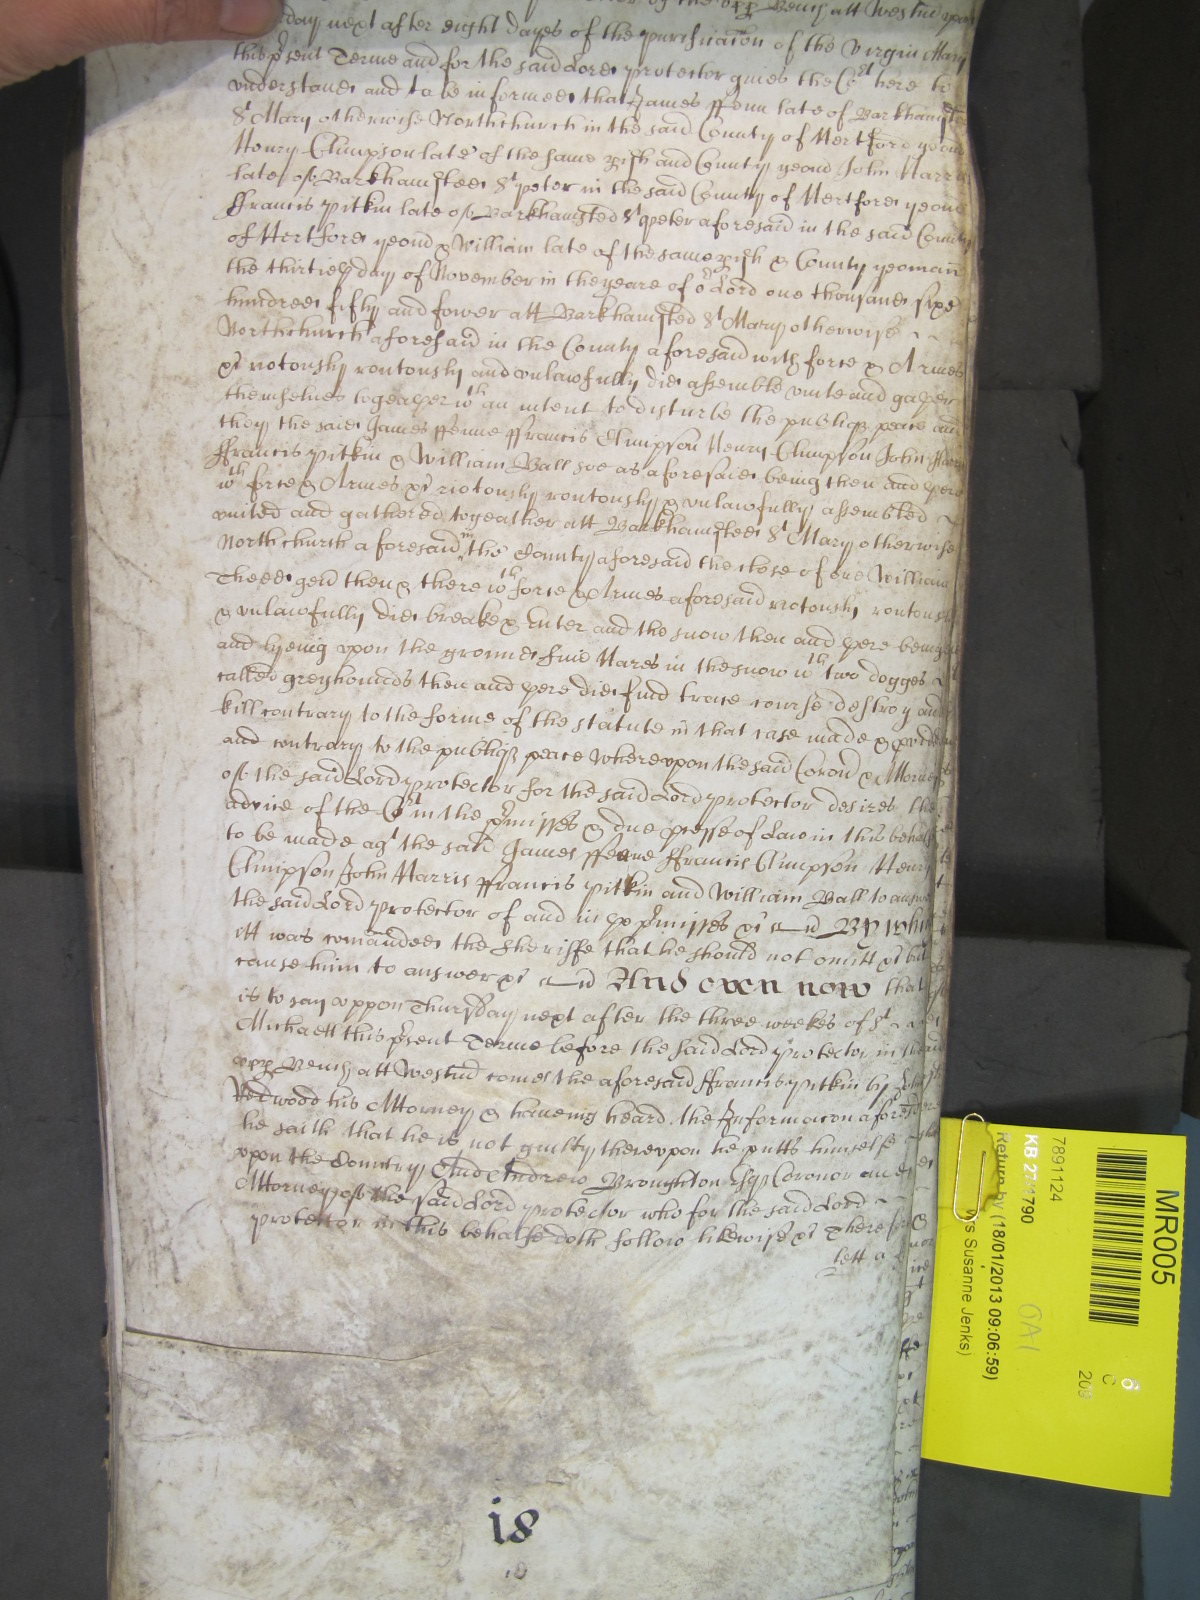 Bench att Westm̃ upon
day next after eight dayes of the purificac̃on of the Virgin Mary
this p̃sent Terme and for the said Lord protector gives the Co^rt here to
understand and to be informed that James ffenn late of Barkhamsted
S^t Mary otherwise Northchurch in the said County of Hertford yeom̃
Henry Climpson late of the same p̱ish and County yeom̃ John Harris
late of Barkhamsted S^t peter in the said County of Hertford yeom̃
ffrancis pitkin late of Barkhamsted S^t peter aforesaid in the said County
of Hertford yeom̃ & William late of the same p̱ish & County yeoman
the thirtieth day of November in the yeare of o^r Lord one thousand sixe
hundred fifty and fower att Barkhamsted S^t Mary otherwise
Northchurch aforesaid in the County aforesaid with force & Armes
&c̃ riotously routously and unlawfully did assemble unite and gather
themselves togeather w^th an intent to disturbe the publiq̃ peace and
they the said James ffenne ffrancis Climpson Henry Climpson John Harris
ffrancis pitkin & William Ball soe as aforesaid being then and there
w^th force & Armes &c̃ riotously routously & unlawfully assembled
united and gathered togeather att Barkhamsted S^t Mary otherwise
Northchurch aforesaid in the County aforesaid the close of one William
gen̄ then & there w^th force & Armes aforesaid riotously routously
& unlawfully did breake & Enter and the snow then and there being
and lyeing upon the ground find Hares in the snow w^th two dogges
called greyhounds then and there did find trace course destroy and
kill contrary to the forme of the statute in that case made & provided
and contrary to the publiq̃ peace Whereupon the said Coron̄ & Attorney
of the said Lord protector for the said Lord protector desires the
advice of the Co^rt in the p̃misses & due p̱cesse of Law in this behalf
to be made ag^t the said James ffenne ffrancis Climpson Henry
Climpson John Harris ffrancis pitkin and William Ball to answer
the said Lord protector of and in the p̃misses &c̃ By which
itt was com̃anded the sheriffe that he should not omitt &c̃ but
cause him to answer &c̃ And even now that
is to say uppon Thursday next after the three weekes of S^t
Michaell this p̃sent Terme before the said Lord protector in the
upp̱ Bench att Westm̃ comes the aforesaid ffrancis pitkin by
Redwood his Attorney & haveing heard the Informac̃on aforesaid
he saith that he is not guilty thereupon he putts himselfe
upon the Country And Andrew Broughton Esq̃ Coronor and
Attorney of the said Lord protector who for the said Lord
protector in this behalfe doth follow likewise &c̃ Therefore
lett a
i8
MR005
7891124
KB 27/1790
Return by (18/01/2013 09:06:59)
s Susanne Jenks)